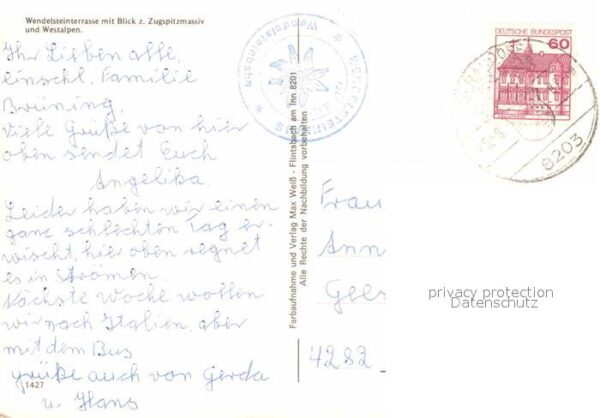 Wendelsteinterrasse mit Blick z. Zugspitzmassiv
und Westalpen.
Ihr Lieben alle,
einschl. Familie
Breüning.
Viele Grüße von hier
oben sendet Euch
Angelika.
Leider haben wir einen
ganz schlechten Tag er-
wischt, hier oben regnet
es in Strömen.
Nächste Woche wollen
wir nach Italien, aber
mit dem Bus
Grüße auch von Gerda
u. Hans
1427
Farbaufnahme und Verlag Max Weiß - Flintsbach am Inn 8201
Alle Rechte der Nachbildung vorbehalten
DEUTSCHE BUNDESPOST
60
8203
Frau
Ann
Gees
4282
privacy protection
Datenschutz